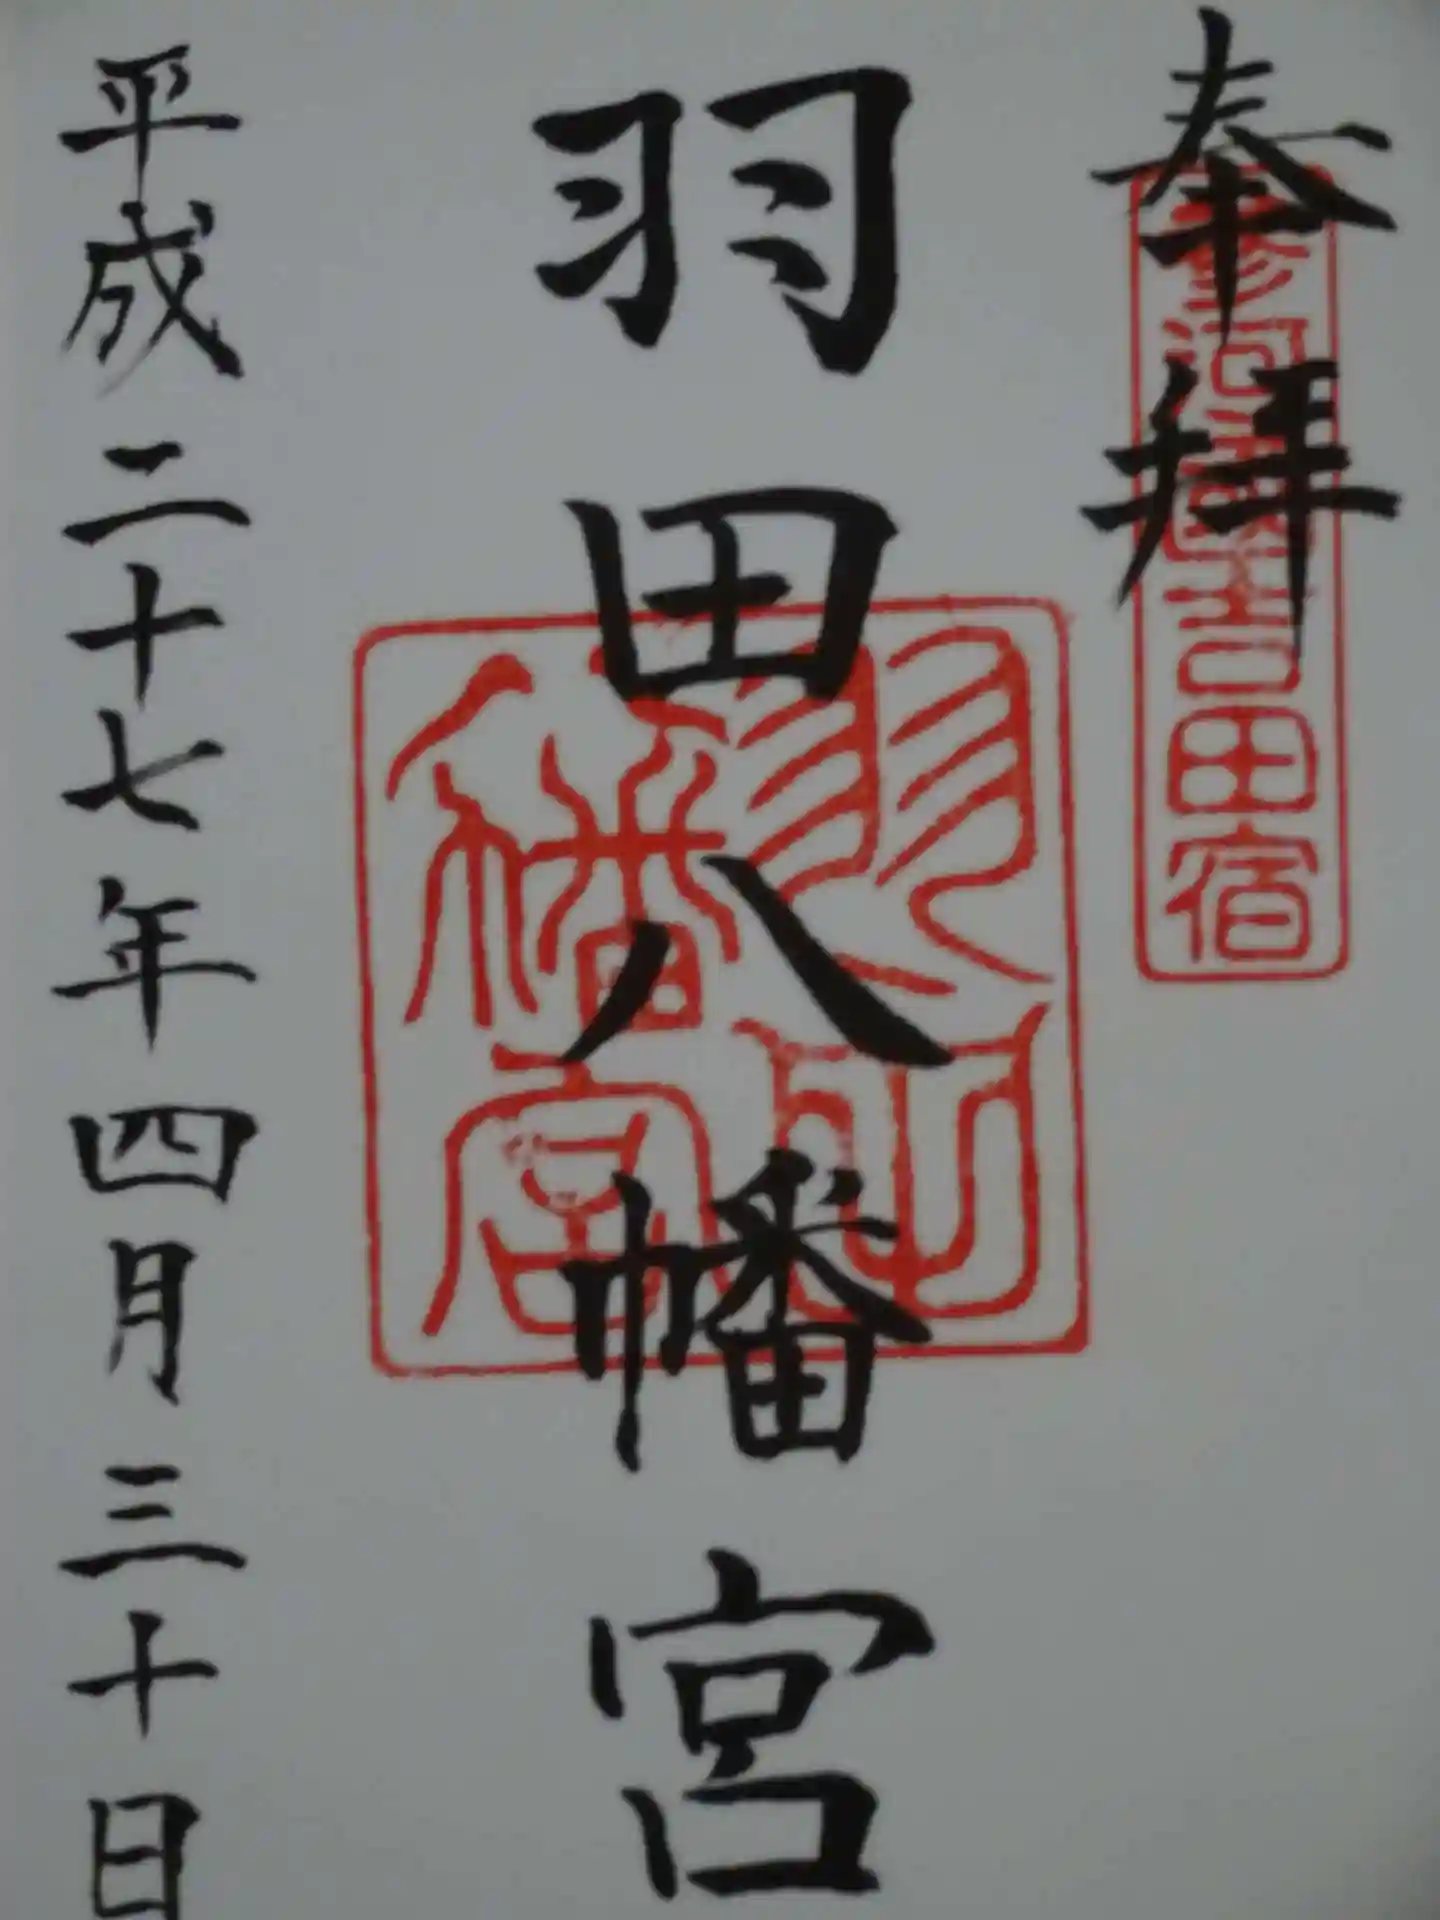 奉拝
参河國吉田宿
羽田八幡宮
平成二十七年四月三十日